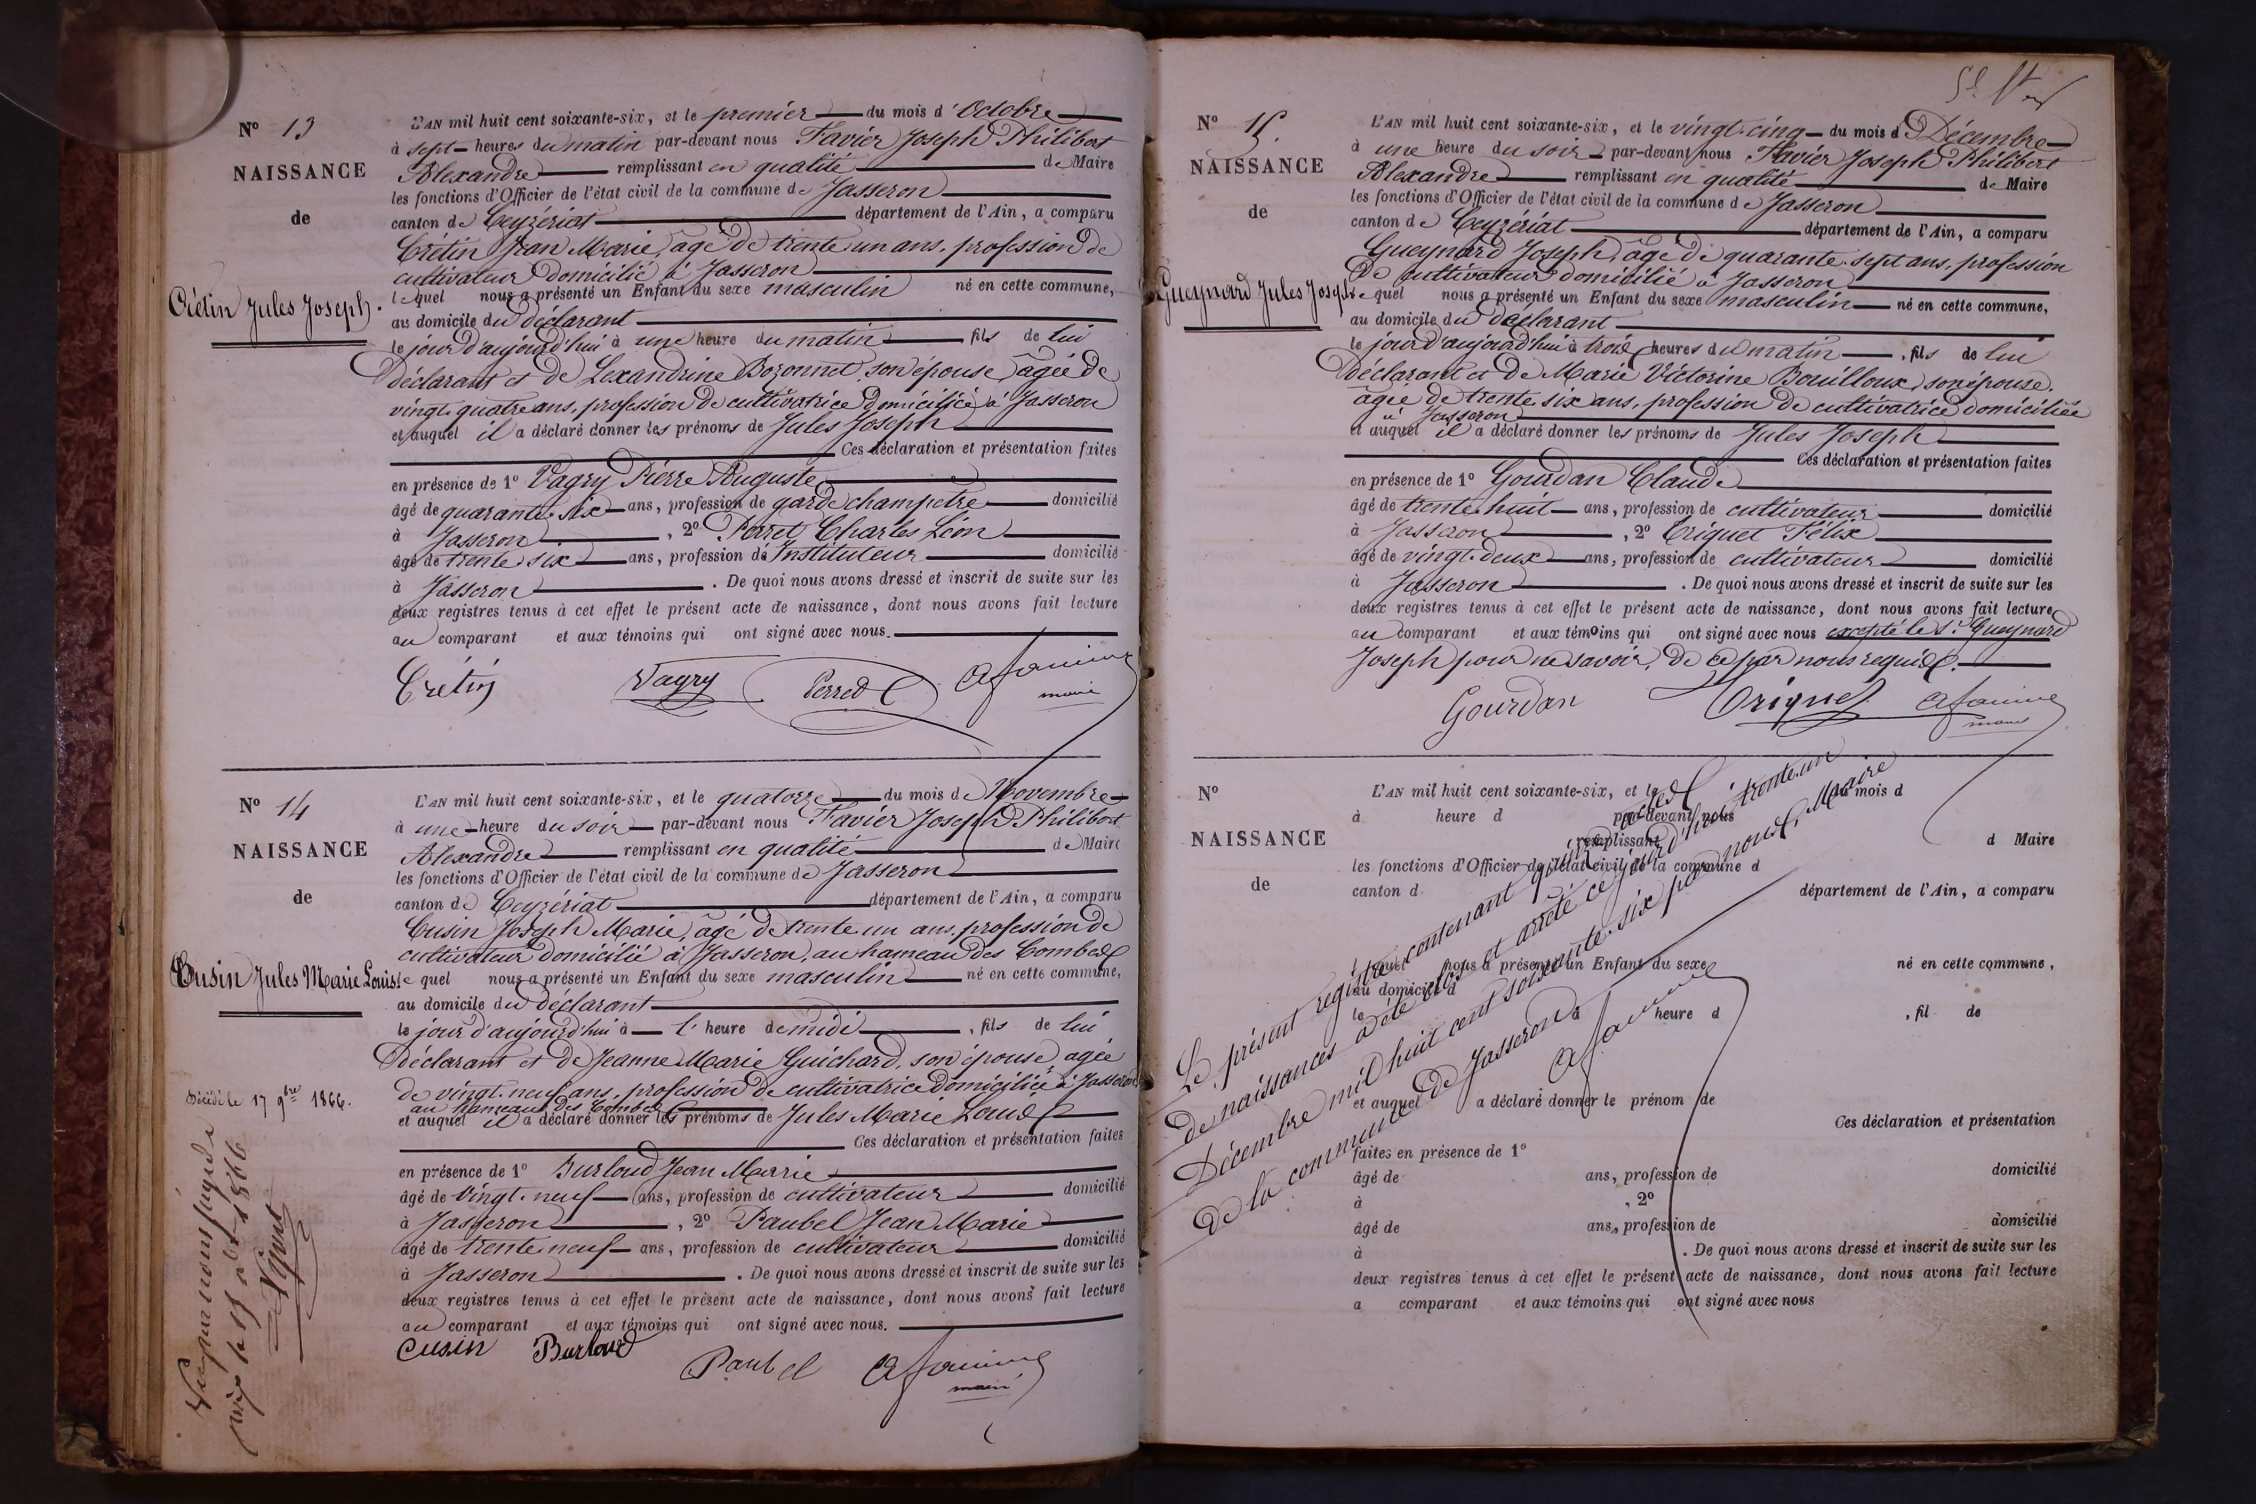 N° 13
NAISSANCE
de
Crétin Jules Joseph.
L'AN mil huit cent soixante-six, et le premier du mois d'Octobre
à sept heures du matin par-devant nous Favier Joseph Philibert
Alexandre remplissant en qualité de Maire
les fonctions d'Officier de l'état civil de la commune de Jasseron
canton de Ceyzériat département de l'Ain, a comparu
Crétin Jean Marie, âgé de trente un ans, profession de
cultivateur domicilié à Jasseron
lequel nous a présenté un Enfant du sexe masculin né en cette commune,
au domicile du déclarant
le jour d'aujourd'hui à une heure du matin fils de lui
Déclarant et de Lexandrine Bozonnet, son épouse, âgée de
vingt-quatre ans, profession de cultivatrice domiciliée à Jasseron
et auquel il a déclaré donner les prénoms de Jules Joseph
Ces déclaration et présentation faites
en présence de 1° Vagry Pierre Auguste
âgé de quarante-six ans, profession de garde champêtre domicilié
à Jasseron, 2° Perret Charles Léon
âgé de trente six ans, profession d'Instituteur domicilié
à Jasseron. De quoi nous avons dressé et inscrit de suite sur les
deux registres tenus à cet effet le présent acte de naissance, dont nous avons fait lecture
au comparant et aux témoins qui ont signé avec nous.
Crétin Vagry Perret afavier
maire
N° 14
NAISSANCE
de
Cusin Jules Marie Louis
Décédé le 17 9bre 1866.
L'AN mil huit cent soixante-six, et le quatorze du mois de Novembre
à une heure du soir par-devant nous Favier Joseph Philibert
Alexandre remplissant en qualité de Maire
les fonctions d'Officier de l'état civil de la commune de Jasseron
canton de Ceyzériat département de l'Ain, a comparu
Cusin Joseph Marie, âgé de trente un ans, profession de
cultivateur domicilié à Jasseron, au hameau des Combes
lequel nous a présenté un Enfant du sexe masculin né en cette commune,
au domicile du déclarant
le jour d'aujourd'hui à l'heure de midi, fils de lui
Déclarant et de Jeanne Marie Guichard, son épouse, agée
de vingt-neuf ans, profession de cultivatrice domiciliée à Jasseron
au hameau des Combes
et auquel il a déclaré donner les prénoms de Jules Marie Louis
Ces déclaration et présentation faites
en présence de 1° Burloud Jean Marie
âgé de vingt-neuf ans, profession de cultivateur domicilié
à Jasseron, 2° Paubel Jean Marie
âgé de trente-neuf ans, profession de cultivateur domicilié
à Jasseron. De quoi nous avons dressé et inscrit de suite sur les
deux registres tenus à cet effet le présent acte de naissance, dont nous avons fait lecture
au comparant et aux témoins qui ont signé avec nous.
Cusin Burloud Paubel afavier
maire
Vu par nous
1866
N° 15.
NAISSANCE
de
Gueynard Jules Joseph
L'AN mil huit cent soixante-six, et le vingt-cinq du mois d Décembre
à une heure du soir par-devant nous Favier Joseph Philibert
Alexandre remplissant en qualité de Maire
les fonctions d'Officier de l'état civil de la commune de Jasseron
canton de Ceyzériat département de l'Ain, a comparu
Gueynard Joseph, âgé de quarante-sept ans, profession
de cultivateur domicilié à Jasseron
lequel nous a présenté un Enfant du sexe masculin né en cette commune,
au domicile du déclarant
le jour d'aujourd'hui à trois heures du matin, fils de lui
Déclarant et de Marie Victorine Bouilloux, son épouse,
âgée de trente-six ans, profession de cultivatrice domiciliée
à Jasseron
et auquel il a déclaré donner les prénoms de Jules Joseph
Ces déclaration et présentation faites
en présence de 1° Gourdan Claude
âgé de trente-huit ans, profession de cultivateur domicilié
à Jasseron, 2° Criquet Félix
âgé de vingt-deux ans, profession de cultivateur domicilié
à Jasseron. De quoi nous avons dressé et inscrit de suite sur les
deux registres tenus à cet effet le présent acte de naissance, dont nous avons fait lecture
au comparant et aux témoins qui ont signé avec nous excepté le sr Gueynard
Joseph pour ne savoir, de ce par nous requis.
Gourdan Criquet afavier
maire
N°
NAISSANCE
de
L'AN mil huit cent soixante-six, et le du mois d
à heure d par-devant nous
remplissant d Maire
les fonctions d'Officier de l'état civil de la commune d
canton d département de l'Ain, a comparu
lequel nous a présenté un Enfant du sexe né en cette commune,
au domicile d
le à heure d, fil de
et auquel a déclaré donner le prénom de
Ces déclaration et présentation
faites en présence de 1°
âgé de ans, profession de domicilié
à, 2°
âgé de ans, profession de domicilié
à. De quoi nous avons dressé et inscrit de suite sur les
deux registres tenus à cet effet le présent acte de naissance, dont nous avons fait lecture
a comparant et aux témoins qui ont signé avec nous
Le présent registre contenant quinze actes
de naissances a été clos et arrêté ce jourd'hui trente-un
Décembre mil huit cent soixante-six par nous, Maire
de la commune de Jasseron
afavier